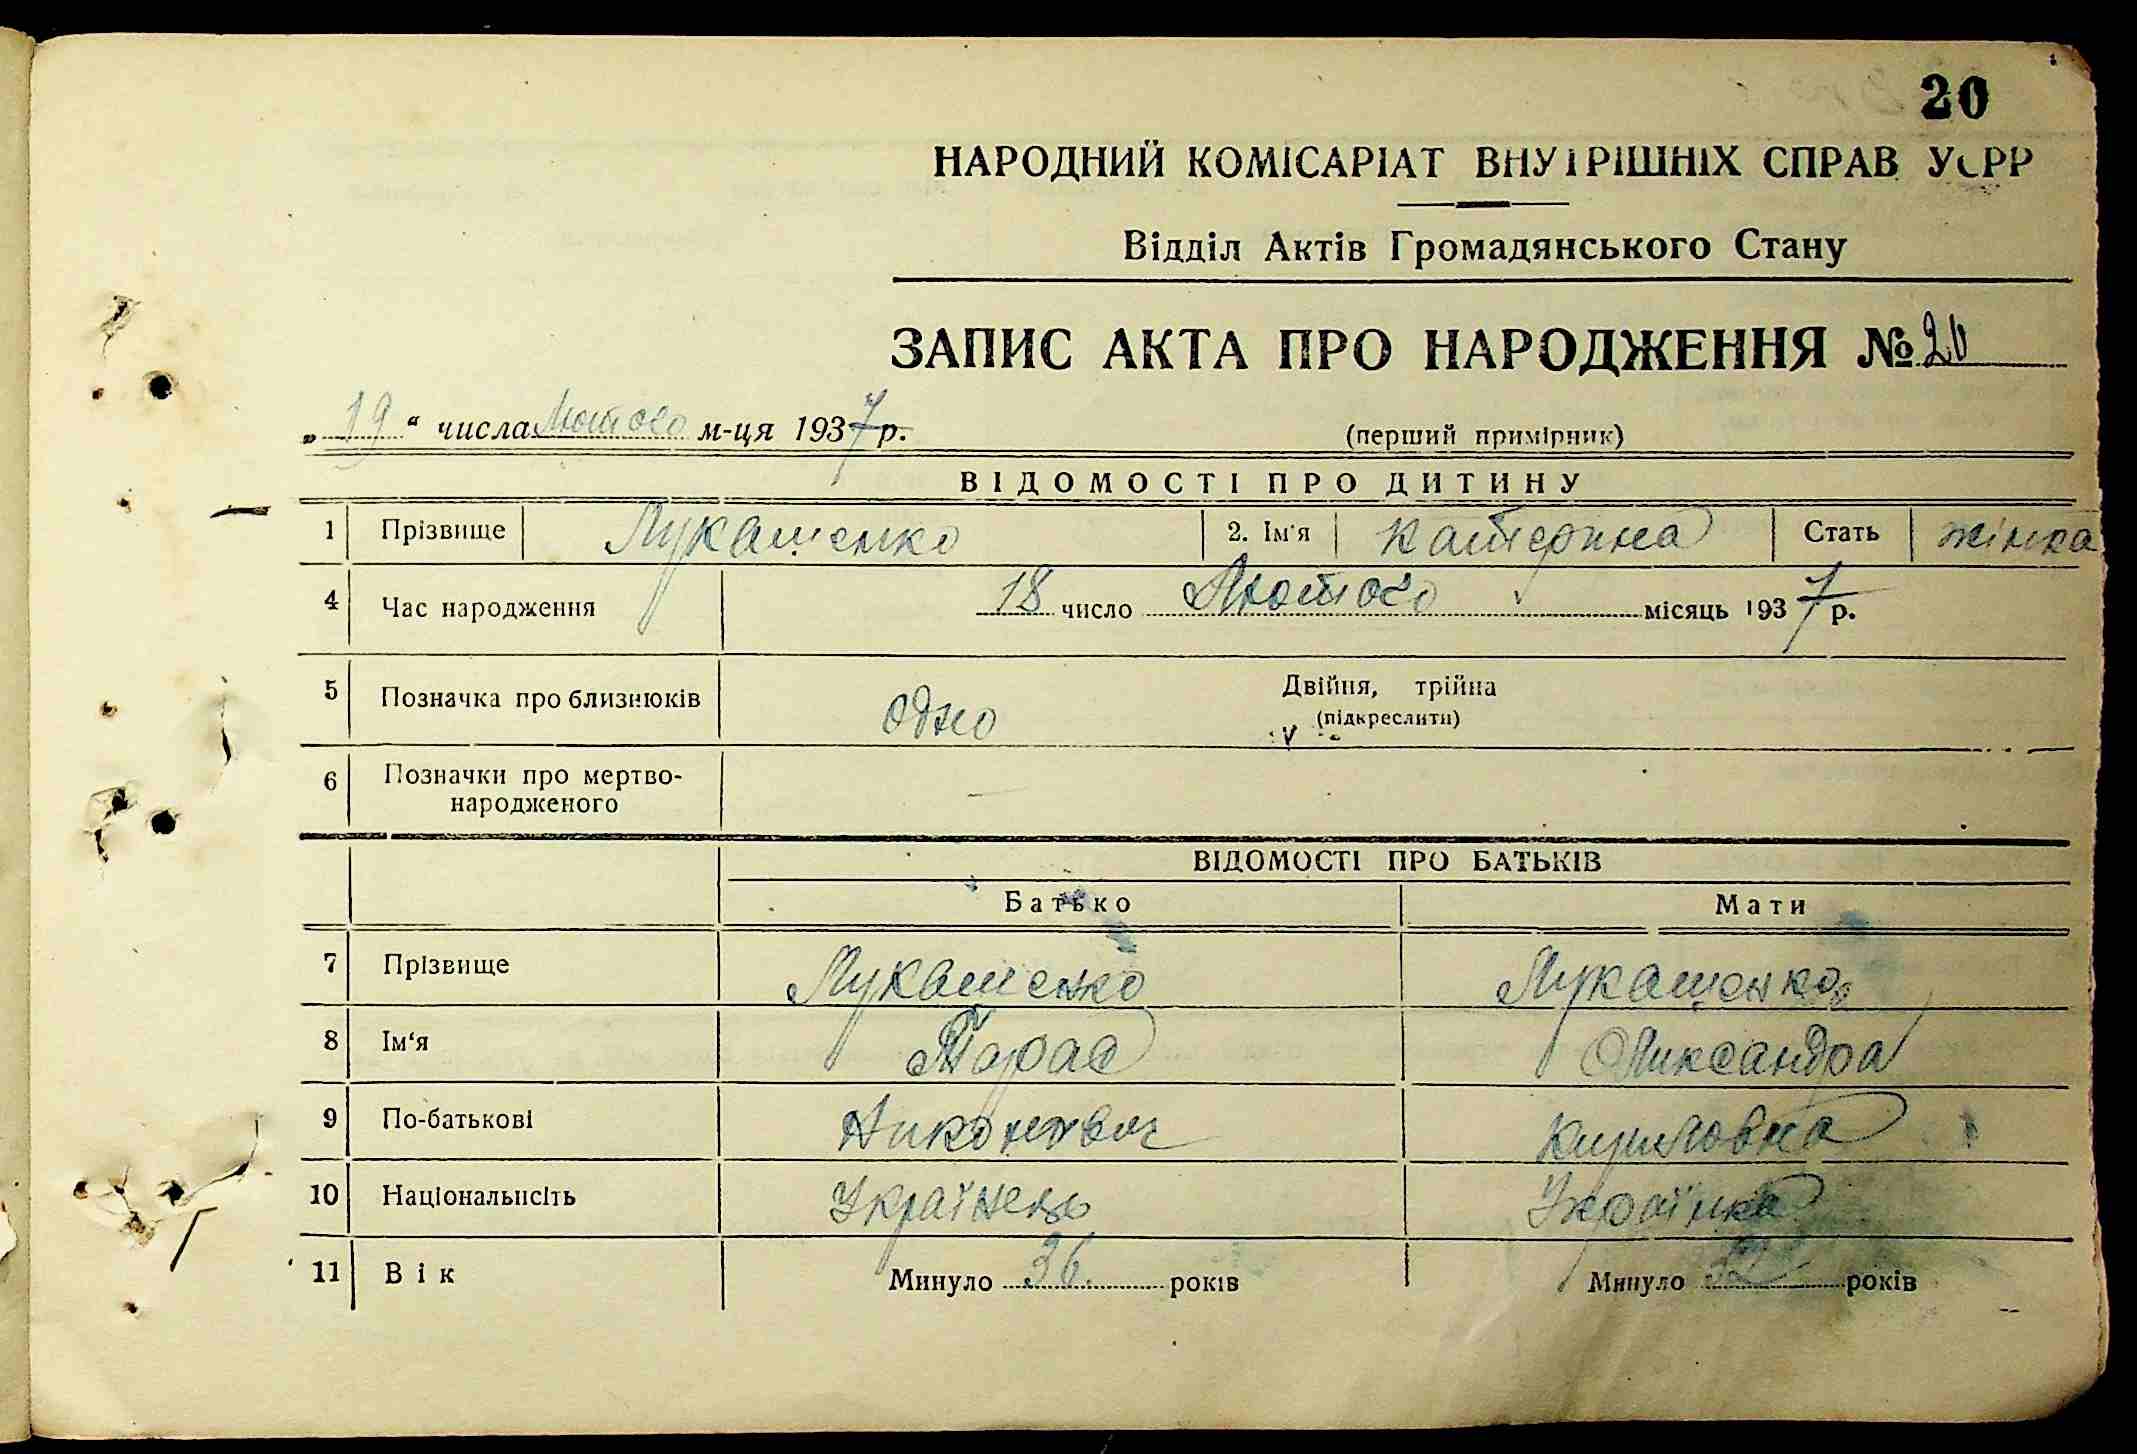 20
НАРОДНИЙ КОМІСАРІАТ ВНУТРІШНІХ СПРАВ УСРР
Відділ Актів Громадянського Стану
ЗАПИС АКТА ПРО НАРОДЖЕННЯ № 20
„19“ числа Лютого м-ця 1937 р. (перший примірник)
ВІДОМОСТІ ПРО ДИТИНУ
1 Прізвище Лукашенко 2. Ім'я Катерина Стать жінка
4 Час народження 18 число Лютого місяць 1937 р.
5 Позначка про близнюків одно Двійня, трійна
(підкреслити)
6 Позначки про мертво-
народженого —
ВІДОМОСТІ ПРО БАТЬКІВ
Батько Мати
7 Прізвище Лукашенко Лукашенко
8 Ім‘я Тарас Оликсандра
9 По-батькові Никонович Кириловна
10 Національність Українець Українка
11 Вік Минуло 36 років Минуло 32 років